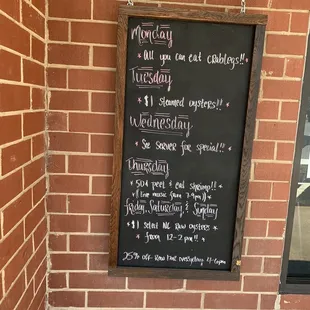 Monday
* All you can eat crablegs!! *
Tuesday
* $1 steamed oysters!! *
Wednesday
* See Server for special!! *
Thursday
* 50¢ peel & eat shrimp!! *
(live music from 7-9pm)
Friday, Saturday & Sunday
* $1 select NC Raw oysters
* from 12-2pm!! *
25% off Raw bar everyday 4-6pm